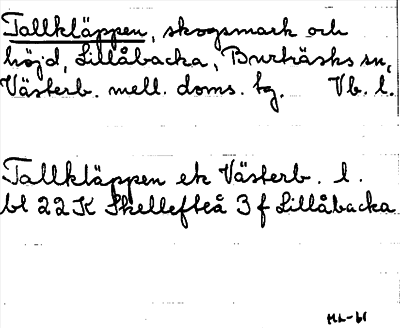 Tallkläppen, skogsmark och
höjd, Lillåbacka, Burträsks sn,
Västerb. mell. doms. tg. Vb. l.
Tallkläppen ek Västerb. l.
bl 22K Skellefteå 3f Lillåbacka